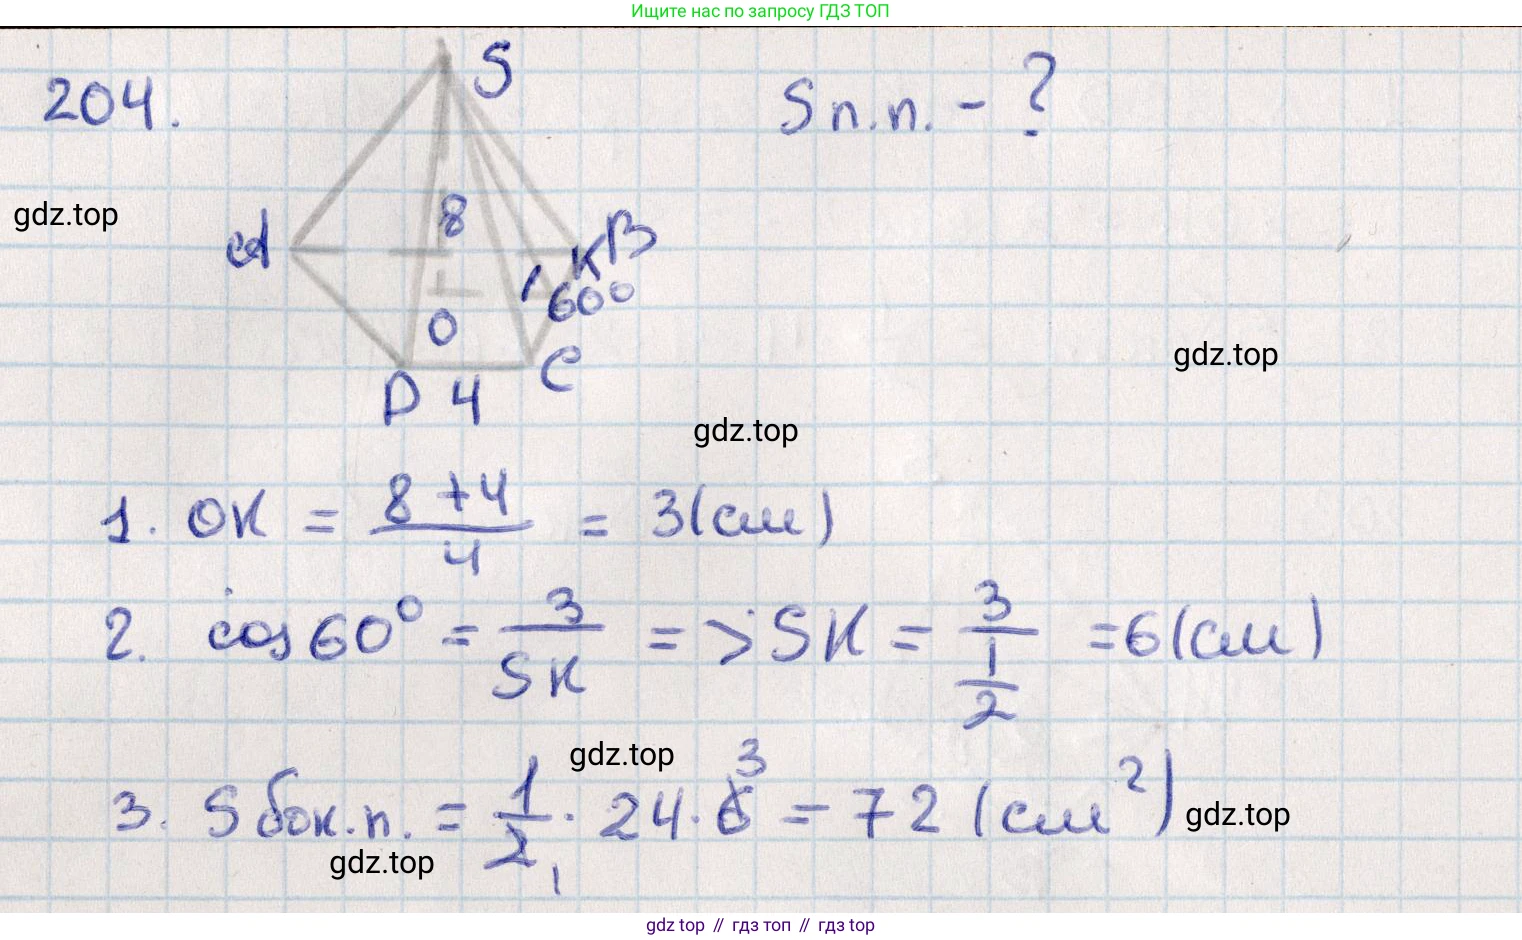 Ищите нас по запросу ГДЗ ТОП
204.
S
Sп.п. - ?
gdz.top
A
8
K
B
60°
O
gdz.top
D
4
C
gdz.top
1. OK = (8 + 4)/4 = 3(см)
2. cos 60° = 3/SK => SK = 3/(1/2) = 6(см)
gdz.top
3. Sбок.п. = 1/2 · 24 · 6 = 72 (см²)
3
1
gdz.top
gdz.top
gdz top // гдз топ // gdz top